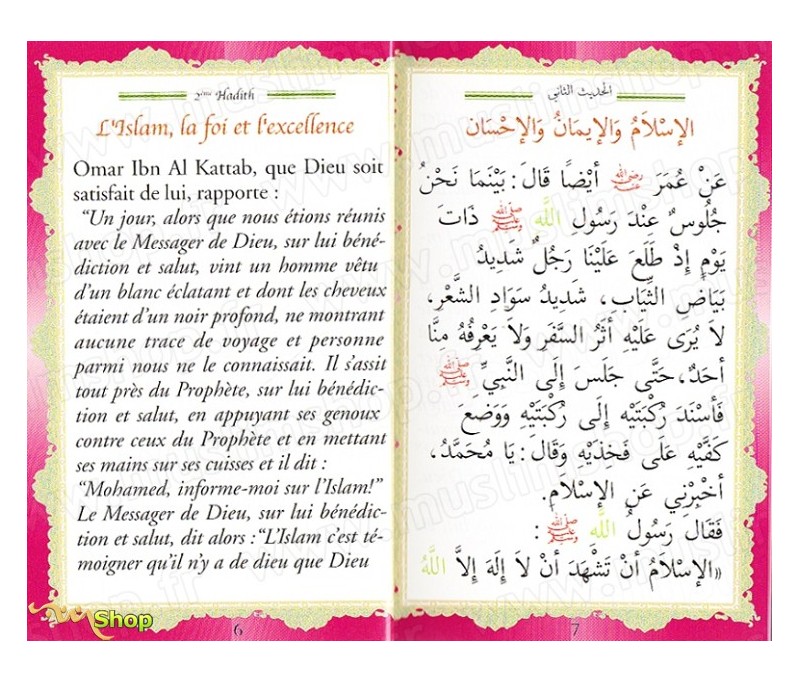 2ème Hadith
L'Islam, la foi et l'excellence
Omar Ibn Al Kattab, que Dieu soit
satisfait de lui, rapporte :
“Un jour, alors que nous étions réunis
avec le Messager de Dieu, sur lui béné-
diction et salut, vint un homme vêtu
d’un blanc éclatant et dont les cheveux
étaient d’un noir profond, ne montrant
aucune trace de voyage et personne
parmi nous ne le connaissait. Il s’assit
tout près du Prophète, sur lui bénédic-
tion et salut, en appuyant ses genoux
contre ceux du Prophète et en mettant
ses mains sur ses cuisses et il dit :
“Mohamed, informe-moi sur l’Islam!”
Le Messager de Dieu, sur lui bénédic-
tion et salut, dit alors :“L’Islam c’est té-
moigner qu’il n’y a de dieu que Dieu
6
الحديث الثاني
الإِسْلَامُ وَالإِيمَانُ وَالإِحْسَان
عَنْ عُمَرَ رضي الله عنه أَيْضًا قَالَ: بَيْنَمَا نَحْنُ
جُلُوسٌ عِنْدَ رَسُولِ اللَّهِ ﷺ ذَاتَ
يَوْمٍ إِذْ طَلَعَ عَلَيْنَا رَجُلٌ شَدِيدُ
بَيَاضِ الثِّيَابِ، شَدِيدُ سَوَادِ الشَّعْرِ،
لَا يُرَى عَلَيْهِ أَثَرُ السَّفَرِ وَلَا يَعْرِفُهُ مِنَّا
أَحَدٌ،حَتَّى جَلَسَ إِلَى النَّبِيِّ ﷺ
فَأَسْنَدَ رُكْبَتَيْهِ إِلَى رُكْبَتَيْهِ وَوَضَعَ
كَفَّيْهِ عَلَى فَخِذَيْهِ وَقَالَ: يَا مُحَمَّدُ،
أَخْبِرْنِي عَنِ الإِسْلَامِ.
فَقَالَ رَسُولُ اللَّهِ ﷺ :
«الإِسْلَامُ أَنْ تَشْهَدَ أَنْ لَا إِلَهَ إِلَّا اللَّهُ
7
Shop